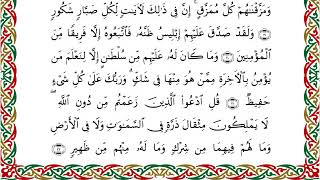 وَمَزَّقْنَٰهُمْ كُلَّ مُمَزَّقٍ ۚ إِنَّ فِى ذَٰلِكَ لَءَايَٰتٍ لِّكُلِّ صَبَّارٍ شَكُورٍ
﴿١٩﴾ وَلَقَدْ صَدَّقَ عَلَيْهِمْ إِبْلِيسُ ظَنَّهُۥ فَٱتَّبَعُوهُ إِلَّا فَرِيقًا مِّنَ
ٱلْمُؤْمِنِينَ ﴿٢٠﴾ وَمَا كَانَ لَهُۥ عَلَيْهِم مِّن سُلْطَٰنٍ إِلَّا لِنَعْلَمَ مَن
يُؤْمِنُ بِٱلْءَاخِرَةِ مِمَّنْ هُوَ مِنْهَا فِى شَكٍّ ۗ وَرَبُّكَ عَلَىٰ كُلِّ شَىْءٍ
حَفِيظٌ ﴿٢١﴾ قُلِ ٱدْعُوا۟ ٱلَّذِينَ زَعَمْتُم مِّن دُونِ ٱللَّهِ ۖ
لَا يَمْلِكُونَ مِثْقَالَ ذَرَّةٍ فِى ٱلسَّمَٰوَٰتِ وَلَا فِى ٱلْأَرْضِ
وَمَا لَهُمْ فِيهِمَا مِن شِرْكٍ وَمَا لَهُۥ مِنْهُم مِّن ظَهِيرٍ ﴿٢٢﴾